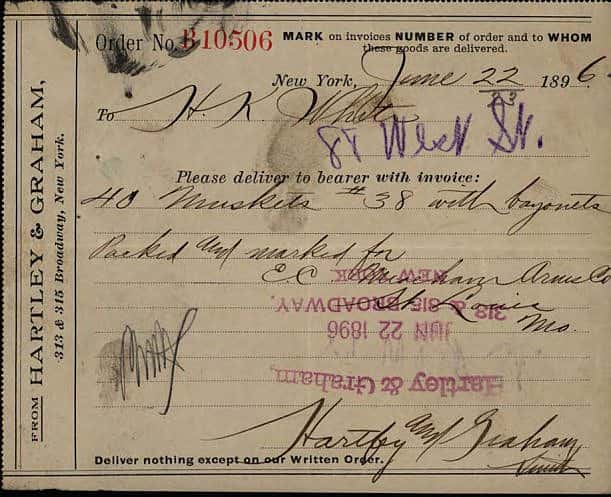 Order No. B10506
MARK on invoices NUMBER of order and to WHOM
these goods are delivered.
New York, June 22 1896.
23
To H. K. White
84 West St.
Please deliver to bearer with invoice:
40 Muskets # 38 with bayonets
Packed and marked for
E. C. Meacham Arms Co
St. Louis
Mo.
Hartley & Graham,
JUN 22 1896
313 & 315 BROADWAY,
NEW YORK
Hartley and Graham
Deliver nothing except on our Written Order.
FROM HARTLEY & GRAHAM,
313 & 315 Broadway, New York.